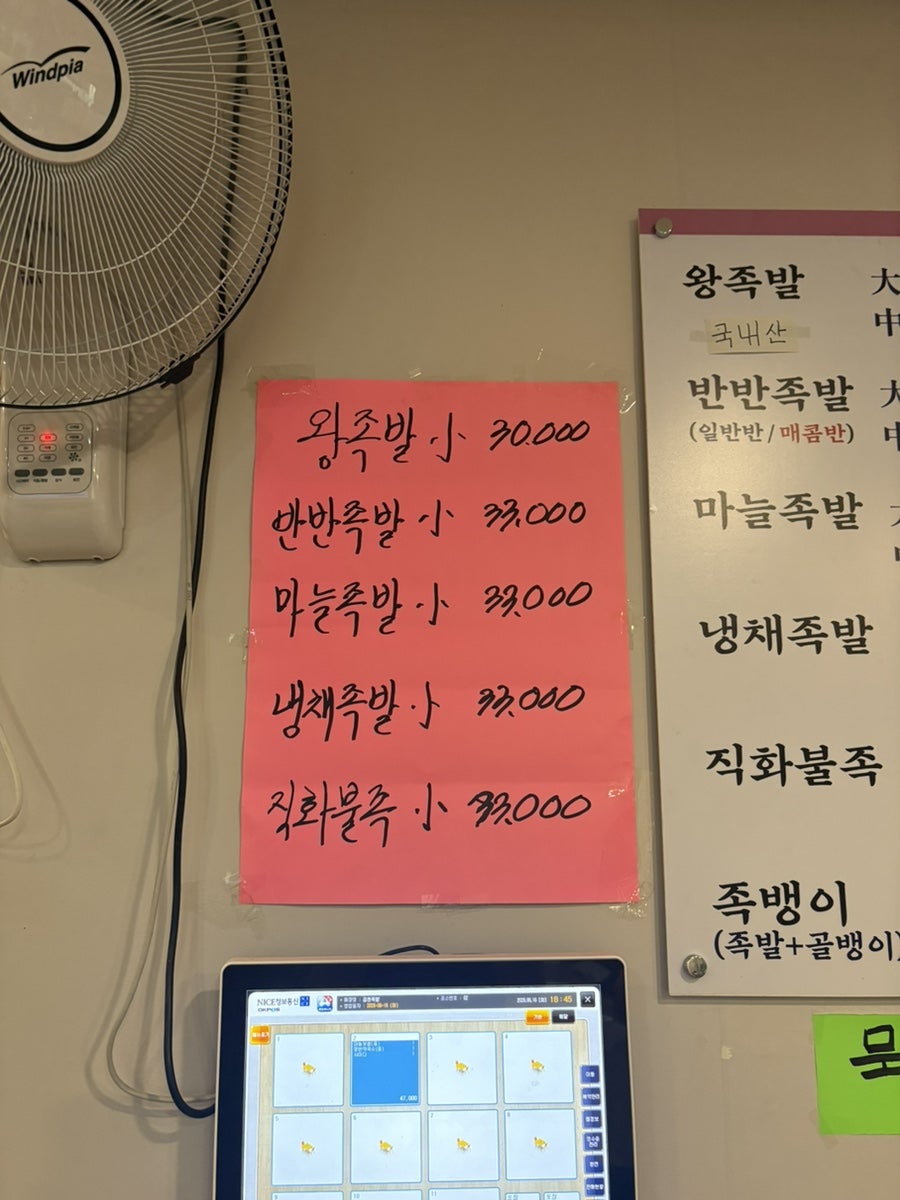 Windpia
왕족발 小 30.000
반반족발 小 33.000
마늘족발 小 33,000
냉채족발 小 33.000
직화불족 小 33.000
왕족발 大
中
국내산
반반족발 大
(일반반/매콤반) 中
마늘족발
냉채족발
직화불족
족뱅이
(족발+골뱅이)
NICE정보통신
OKPOS
18:45
1
2
3
4
47,000
5
6
7
8
10
11